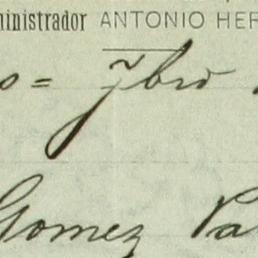 ministrador ANTONIO HER
o = 7bro
Gomez Va